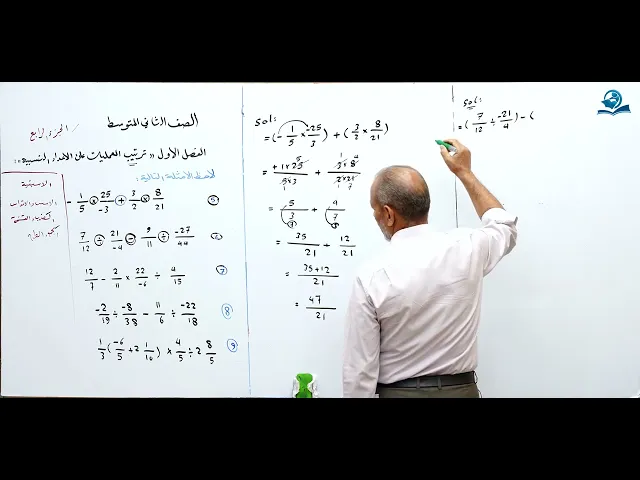 الصف الثاني المتوسط
الجزء الرابع
الفصل الأول (( ترتيب العمليات على الأعداد النسبية ))
لاحظ الأمثلة التالية:
الأسبقية
- 1/5 × 25/-3 + 3/2 × 8/21 (5)
7/12 ÷ 21/-4 - -9/11 ÷ -27/44 (6)
12/7 - 2/11 × 22/-6 ÷ 4/15 (7)
-2/19 ÷ -8/38 - 11/6 ÷ -22/18 (8)
1/3 (-6/5 + 2 1/10) × 4/5 ÷ 2 8/5 (9)
Sol:
= (- 1/5 × -25/3) + (3/2 × 8/21)
= +1×25/5×3 + 3×8/2×21
= 5/3 + 4/7
= 35/21 + 12/21
= 35+12/21
= 47/21
Sol:
= (7/12 ÷ -21/4) - (